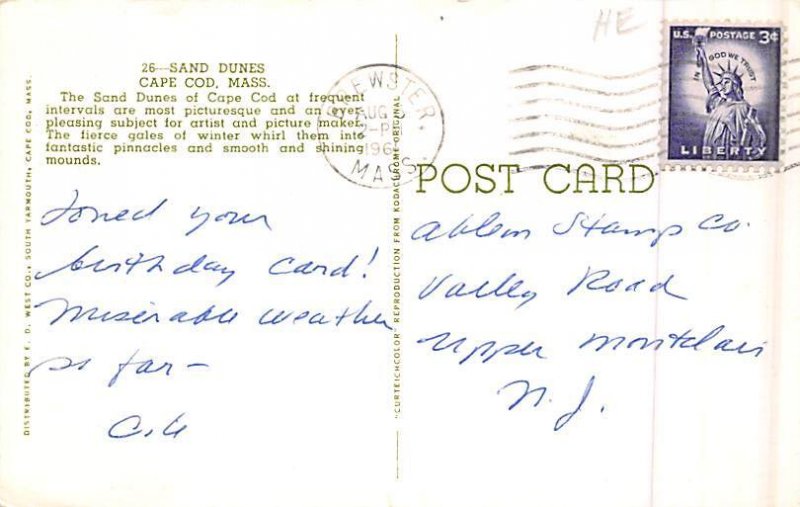 HE
U.S. POSTAGE 3¢
IN GOD WE TRUST
LIBERTY
BREWSTER,
AUG
196
MASS.
26—SAND DUNES
CAPE COD, MASS.
The Sand Dunes of Cape Cod at frequent
intervals are most picturesque and an ever
pleasing subject for artist and picture maker.
The fierce gales of winter whirl them into
fantastic pinnacles and smooth and shining
mounds.
POST CARD
Loved your
birthday card!
Miserable weather
so far—
Ahlem Stamp Co.
Valley Road
Upper Montclair
N.J.
DISTRIBUTED BY E. D. WEST CO., SOUTH YARMOUTH, CAPE COD, MASS.
"CURTEICHCOLOR" REPRODUCTION FROM KODACHROME ORIGINAL